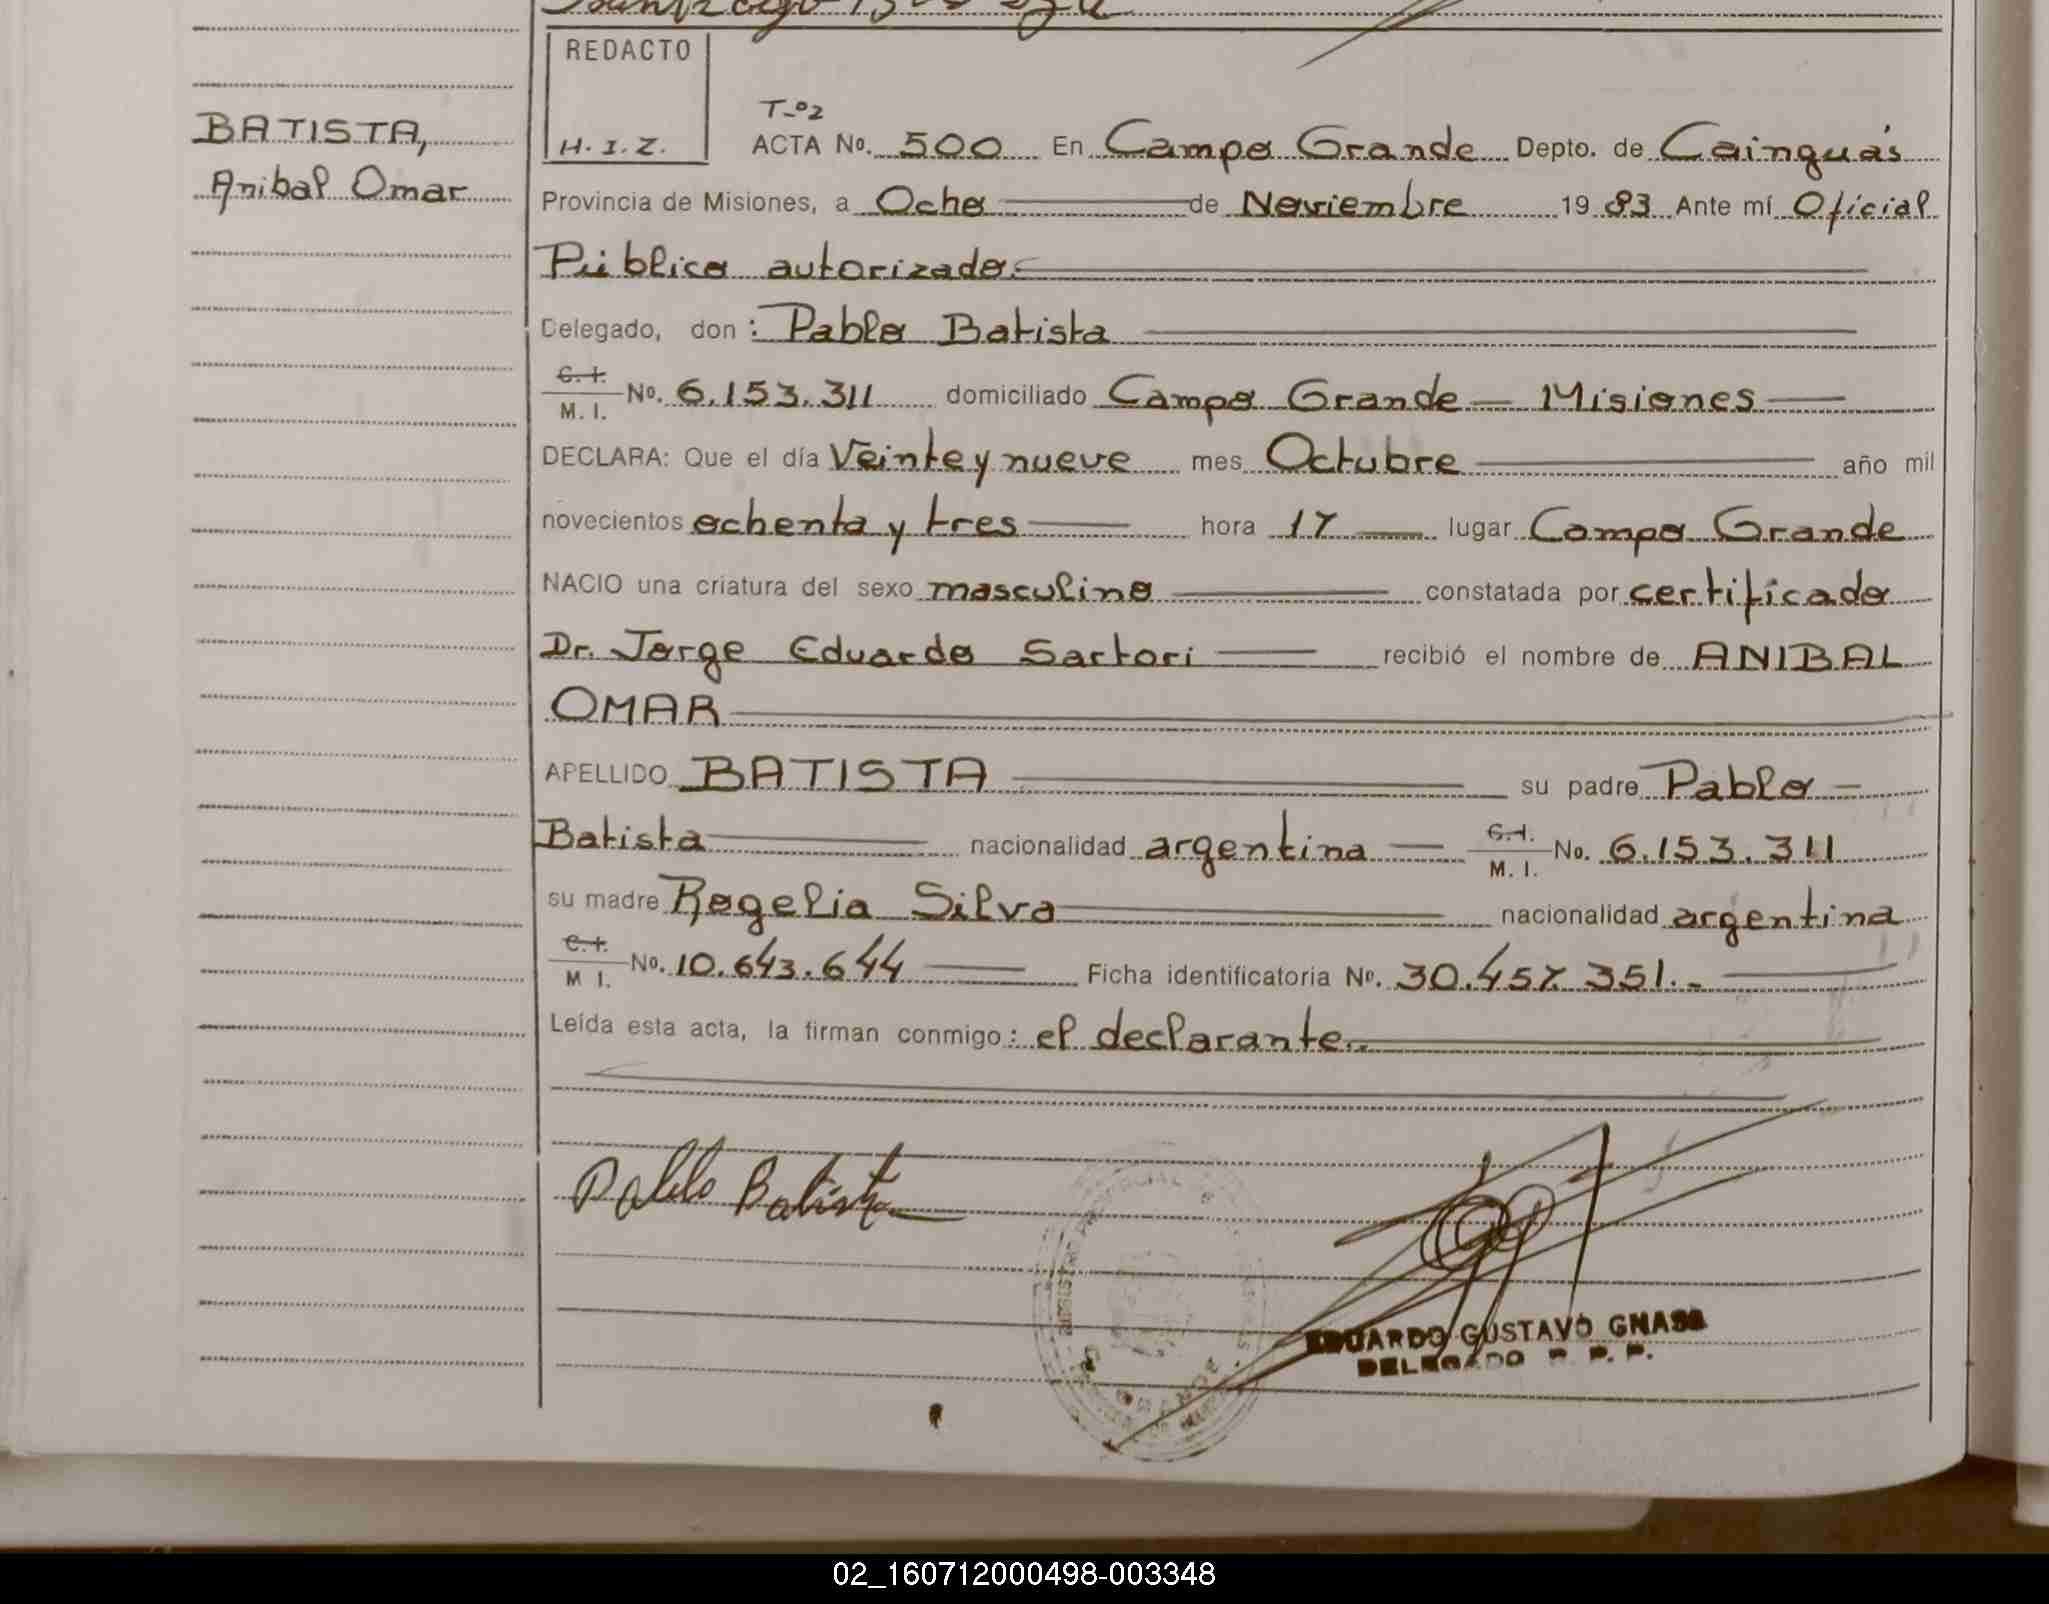 REDACTO
H. I. Z.
BATISTA,
Anibal Omar
T-º2
ACTA Nº. 500 En Campo Grande Depto. de Cainguás
Provincia de Misiones, a Ocho de Noviembre 19 83 Ante mí Oficial
Público autorizado.
Delegado, don: Pablo Batista
C. I.
M. I. Nº. 6.153.311 domiciliado Campo Grande - Misiones
DECLARA: Que el día Veinte y nueve mes Octubre año mil
novecientos ochenta y tres hora 17 lugar Campo Grande
NACIO una criatura del sexo masculino constatada por certificado
Dr. Jorge Eduardo Sartori recibió el nombre de ANIBAL
OMAR
APELLIDO BATISTA su padre Pablo
Batista nacionalidad argentina C. I. M. I. No. 6.153.311
su madre Rogelia Silva nacionalidad argentina
C. I.
M I. No. 10.643.644 Ficha identificatoria Nº. 30.457.351.-
Leída esta acta, la firman conmigo: el declarante.
Pablo Batista
EDUARDO GUSTAVO GNASS
DELEGADO R. P. P.
02_160712000498-003348